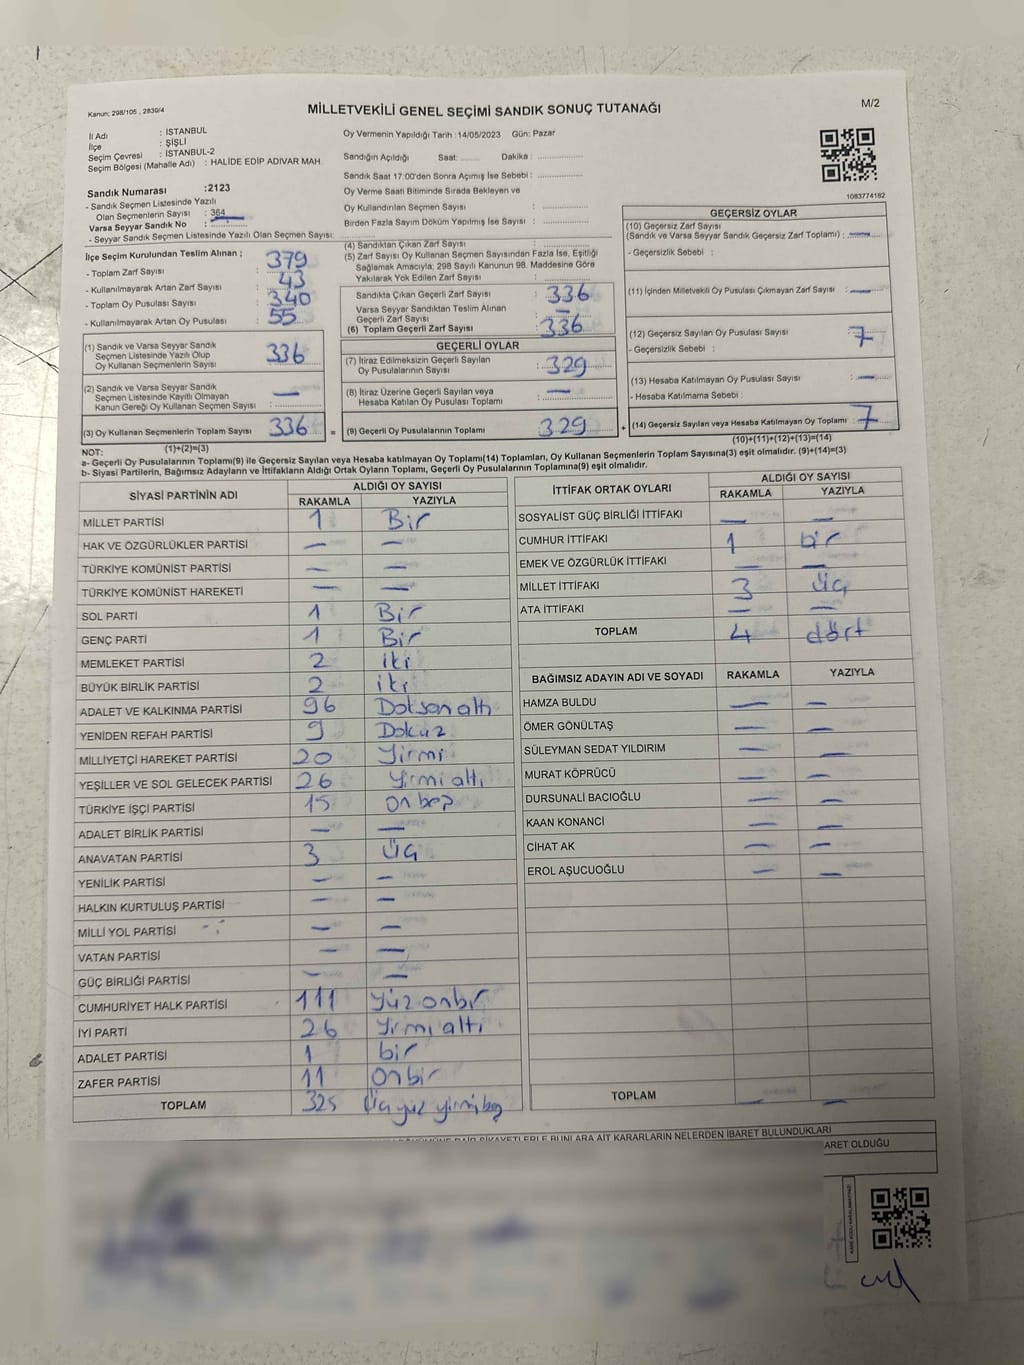 Kanun; 298/105 , 2839/4
MİLLETVEKİLİ GENEL SEÇİMİ SANDIK SONUÇ TUTANAĞI
M/2
İl Adı : İSTANBUL
İlçe : ŞİŞLİ
Seçim Çevresi : İSTANBUL-2
Seçim Bölgesi (Mahalle Adı) : HALİDE EDİP ADIVAR MAH
Sandık Numarası :2123
- Sandık Seçmen Listesinde Yazılı
Olan Seçmenlerin Sayısı : 364
Varsa Seyyar Sandık No :
- Seyyar Sandık Seçmen Listesinde Yazılı Olan Seçmen Sayısı:
Oy Vermenin Yapıldığı Tarih :14/05/2023 Gün: Pazar
Sandığın Açıldığı Saat: Dakika :
Sandık Saat 17:00'den Sonra Açımış İse Sebebi :
Oy Verme Saati Bitiminde Sırada Bekleyen ve
Oy Kullandırılan Seçmen Sayısı :
Birden Fazla Sayım Döküm Yapılmış İse Sayısı :
1083774182
İlçe Seçim Kurulundan Teslim Alınan ;
- Toplam Zarf Sayısı : 379
- Kullanılmayarak Artan Zarf Sayısı : 43
- Toplam Oy Pusulası Sayısı : 340
- Kullanılmayarak Artan Oy Pusulası : 55
(1) Sandık ve Varsa Seyyar Sandık
Seçmen Listesinde Yazılı Olup
Oy Kullanan Seçmenlerin Sayısı : 336
(2) Sandık ve Varsa Seyyar Sandık
Seçmen Listesinde Kayıtlı Olmayan
Kanun Gereği Oy Kullanan Seçmen Sayısı : —
(3) Oy Kullanan Seçmenlerin Toplam Sayısı 336 =
(1)+(2)=(3)
(4) Sandıktan Çıkan Zarf Sayısı :
(5) Zarf Sayısı Oy Kullanan Seçmen Sayısından Fazla İse, Eşitliği
Sağlamak Amacıyla; 298 Sayılı Kanunun 98. Maddesine Göre
Yakılarak Yok Edilen Zarf Sayısı :
Sandıkta Çıkan Geçerli Zarf Sayısı : 336
Varsa Seyyar Sandıktan Teslim Alınan
Geçerli Zarf Sayısı : —
(6) Toplam Geçerli Zarf Sayısı : 336
GEÇERLİ OYLAR
(7) İtiraz Edilmeksizin Geçerli Sayılan
Oy Pusulalarının Sayısı : 329
(8) İtiraz Üzerine Geçerli Sayılan veya
Hesaba Katılan Oy Pusulası Toplamı : —
(9) Geçerli Oy Pusulalarının Toplamı : 329 +
GEÇERSİZ OYLAR
(10) Geçersiz Zarf Sayısı
(Sandık ve Varsa Seyyar Sandık Geçersiz Zarf Toplamı) : —
- Geçersiz Sebebi :
(11) İçinden Milletvekili Oy Pusulası Çıkmayan Zarf Sayısı : —
(12) Geçersiz Sayılan Oy Pusulası Sayısı : 7
- Geçersizlik Sebebi :
(13) Hesaba Katılmayan Oy Pusulası Sayısı : —
- Hesaba Katılmama Sebebi :
(14) Geçersiz Sayılan veya Hesaba Katılmayan Oy Toplamı : 7
(10)+(11)+(12)+(13)=(14)
NOT:
a- Geçerli Oy Pusulalarının Toplamı(9) ile Geçersiz Sayılan veya Hesaba katılmayan Oy Toplamı(14) Toplamları, Oy Kullanan Seçmenlerin Toplam Sayısına(3) eşit olmalıdır. (9)+(14)=(3)
b- Siyasi Partilerin, Bağımsız Adayların ve İttifakların Aldığı Ortak Oyların Toplamı, Geçerli Oy Pusulalarının Toplamına(9) eşit olmalıdır.
SİYASİ PARTİNİN ADI ALDIĞI OY SAYISI
RAKAMLA YAZIYLA
MİLLET PARTİSİ 1 Bir
HAK VE ÖZGÜRLÜKLER PARTİSİ — —
TÜRKİYE KOMÜNİST PARTİSİ — —
TÜRKİYE KOMÜNİST HAREKETİ — —
SOL PARTİ 1 Bir
GENÇ PARTİ 1 Bir
MEMLEKET PARTİSİ 2 iki
BÜYÜK BİRLİK PARTİSİ 2 iki
ADALET VE KALKINMA PARTİSİ 96 Doksanaltı
YENİDEN REFAH PARTİSİ 9 Dokuz
MİLLİYETÇİ HAREKET PARTİSİ 20 Yirmi
YEŞİLLER VE SOL GELECEK PARTİSİ 26 Yirmi altı
TÜRKİYE İŞÇİ PARTİSİ 15 on beş
ADALET BİRLİK PARTİSİ — —
ANAVATAN PARTİSİ 3 Üç
YENİLİK PARTİSİ — —
HALKIN KURTULUŞ PARTİSİ — —
MİLLİ YOL PARTİSİ — —
VATAN PARTİSİ — —
GÜÇ BİRLİĞİ PARTİSİ — —
CUMHURİYET HALK PARTİSİ 111 Yüz onbir
İYİ PARTİ 26 Yirmi altı
ADALET PARTİSİ 1 bir
ZAFER PARTİSİ 11 Onbir
TOPLAM 325 Üçyüz yirmibeş
İTTİFAK ORTAK OYLARI ALDIĞI OY SAYISI
RAKAMLA YAZIYLA
SOSYALİST GÜÇ BİRLİĞİ İTTİFAKI — —
CUMHUR İTTİFAKI 1 bir
EMEK VE ÖZGÜRLÜK İTTİFAKI — —
MİLLET İTTİFAKI 3 Üç
ATA İTTİFAKI — —
TOPLAM 4 dört
BAĞIMSIZ ADAYIN ADI VE SOYADI RAKAMLA YAZIYLA
HAMZA BULDU — —
ÖMER GÖNÜLTAŞ — —
SÜLEYMAN SEDAT YILDIRIM — —
MURAT KÖPRÜCÜ — —
DURSUNALİ BACIOĞLU — —
KAAN KONANCİ — —
CİHAT AK — —
EROL AŞUCUOĞLU — —
TOPLAM — —
ŞİKAYETLERLE BUNLARA AİT KARARLARIN NELERDEN İBARET BULUNDUKLARI
ARET OLDUĞU